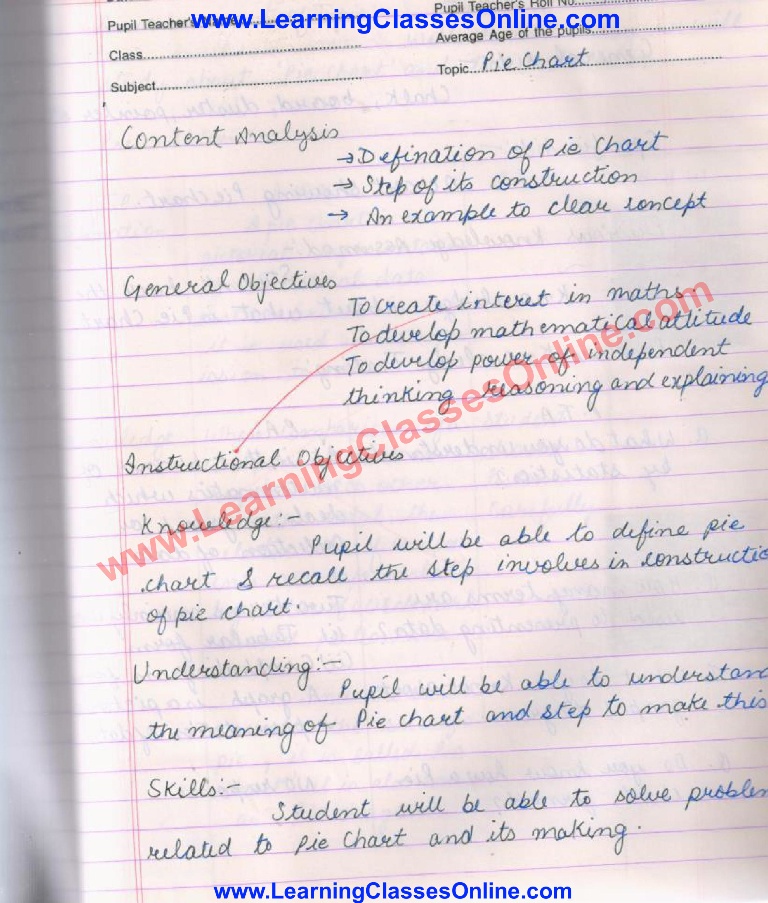 www.LearningClassesOnline.com
Pupil Teacher's Roll No.
Pupil Teacher's Name
Average Age of the pupils
Class
Topic Pie Chart
Subject
Content Analysis
→ Defination of Pie Chart
→ Step of its construction
→ An example to clear concept
General Objectives
To create interet in maths
To develop mathematical attitude
To develop power of independent
thinking reasoning and explaining
Instructional Objectives
www.LearningClassesOnline.com
Knowledge:-
Pupil will be able to define pie
chart & recall the step involves in constructio
of pie chart.
Understanding:-
Pupil will be able to understand
the meaning of Pie chart and step to make this
Skills:-
Student will be able to solve problem
related to Pie Chart and its making.
www.LearningClassesOnline.com